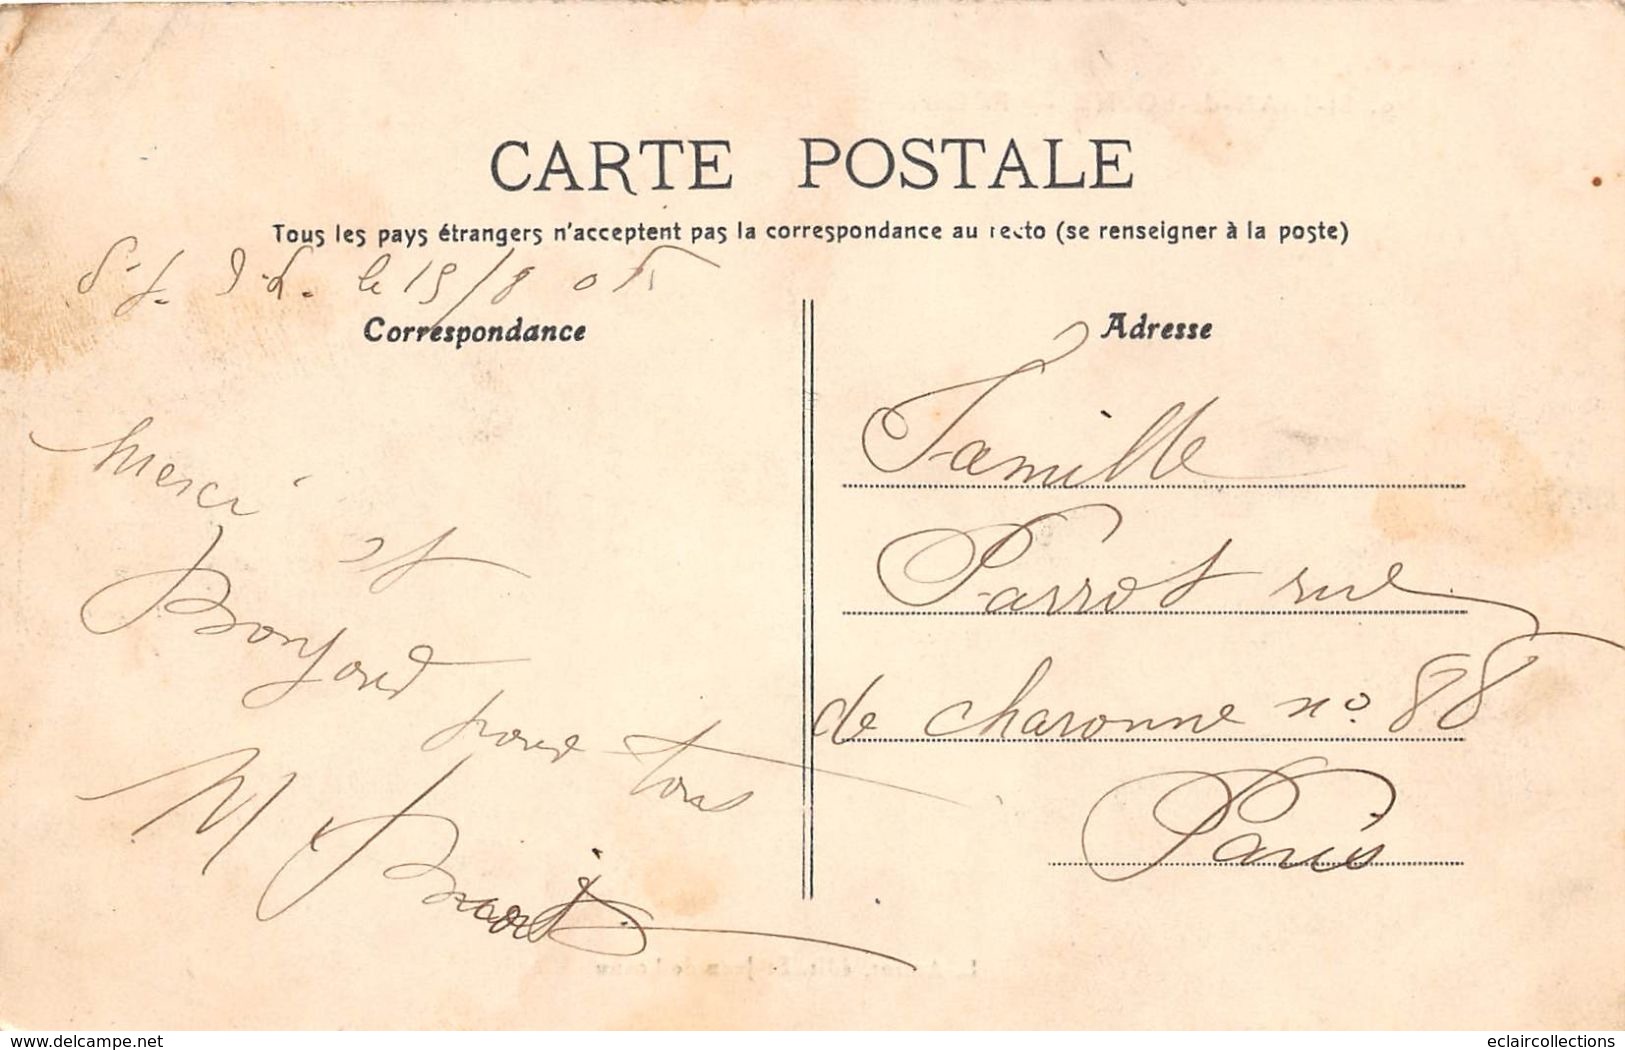 CARTE POSTALE
Tous les pays étrangers n'acceptent pas la correspondance au recto (se renseigner à la poste)
le 15/8 05
Correspondance
Adresse
Merci et
Bonjour
pour tous
M
Famille
Parrot rue
de charonne no. 88
Paris
www.delcampe.net
eclaircollections